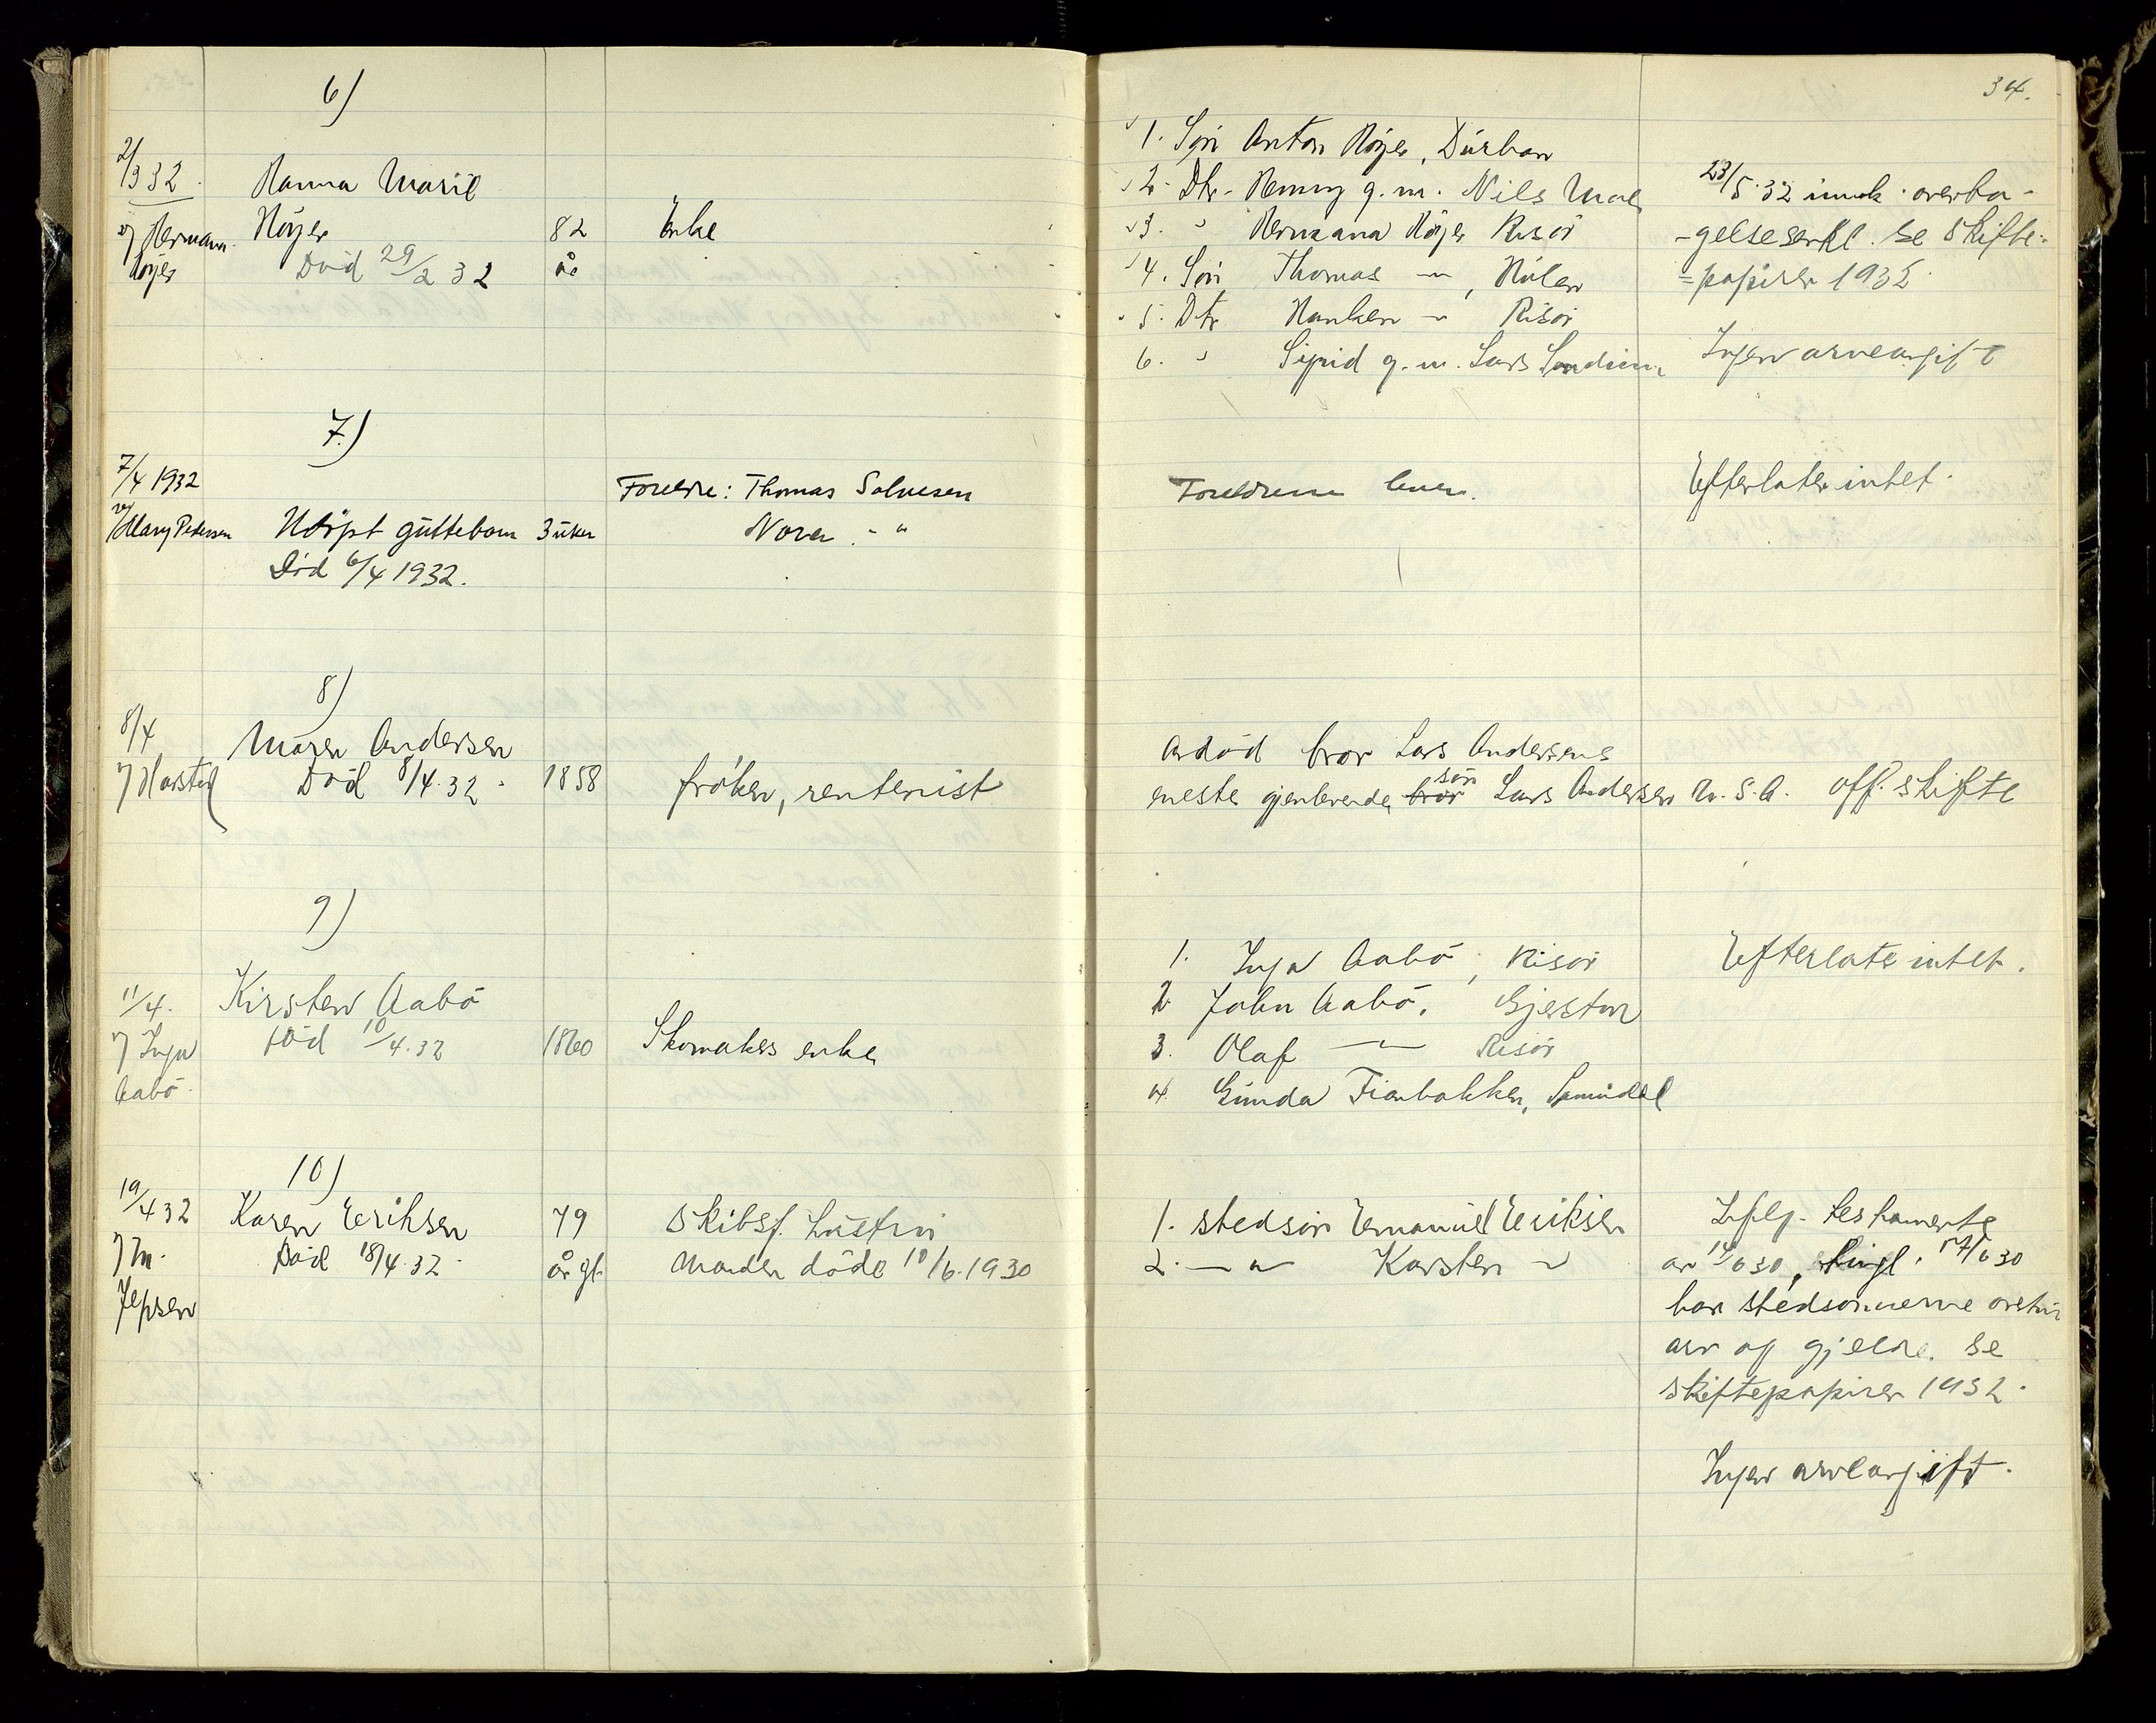 34.
6)
2/3 32
v/ Hermana
Høyer
Hanna Marie
Høyer
Død 29/2 32
82
år
Enke
1. Søn Anton Høyer, Durban
2. Dtr. Henny g. m. Nils Moe
3. " Hermana Høyer Risør
4. Søn Thomas — " —, Hølen
5. Dtr Hanken — " — Risør
6. " Sigrid g. m. Lars
23/5.32 innk. overta-
-gelseserkl. se Skifte-
-papirer 1932
Ingen arveavgift
7.)
7/4 1932
v/ Mary Pedersen
Udøpt guttebarn
Død 6/4 1932.
3 uker
Foreldre: Thomas Salvesen
Nora - "
Foreldrene lever.
Efterlater intet.
8)
8/4
v/ Harstad
Maren Andersen
Død 8/4.32.
1858
frøken, rentenist
Avdød bror Lars Andersens
søn
eneste gjenlevende bror Lars Andersen U.S.A. Off. skifte
9)
11/4.
v/ Inga
Aabø.
Kirsten Aabø
død 10/4.32
1860
Skomakers enke
1. Inga Aabø, Risør
2. John Aabø, Gjerstad
3. Olaf — " — Risør
4. Gunda
Efterlater intet.
10)
19/4 32
v/ M.
Jepsen
Karen Eriksen
Død 18/4.32.
79
år gl.
Skibsf. hustru
Manden døde 10/6.1930
1. Stedsøn Emanuel Eriksen
2. — " — Karsten "
Ifølg. testamente
av 14/6 30, tingl. 17/6 30
har stedsønnerne overtat
arv og gjeld. Se
skiftepapirer 1932.
Ingen arveavgift.